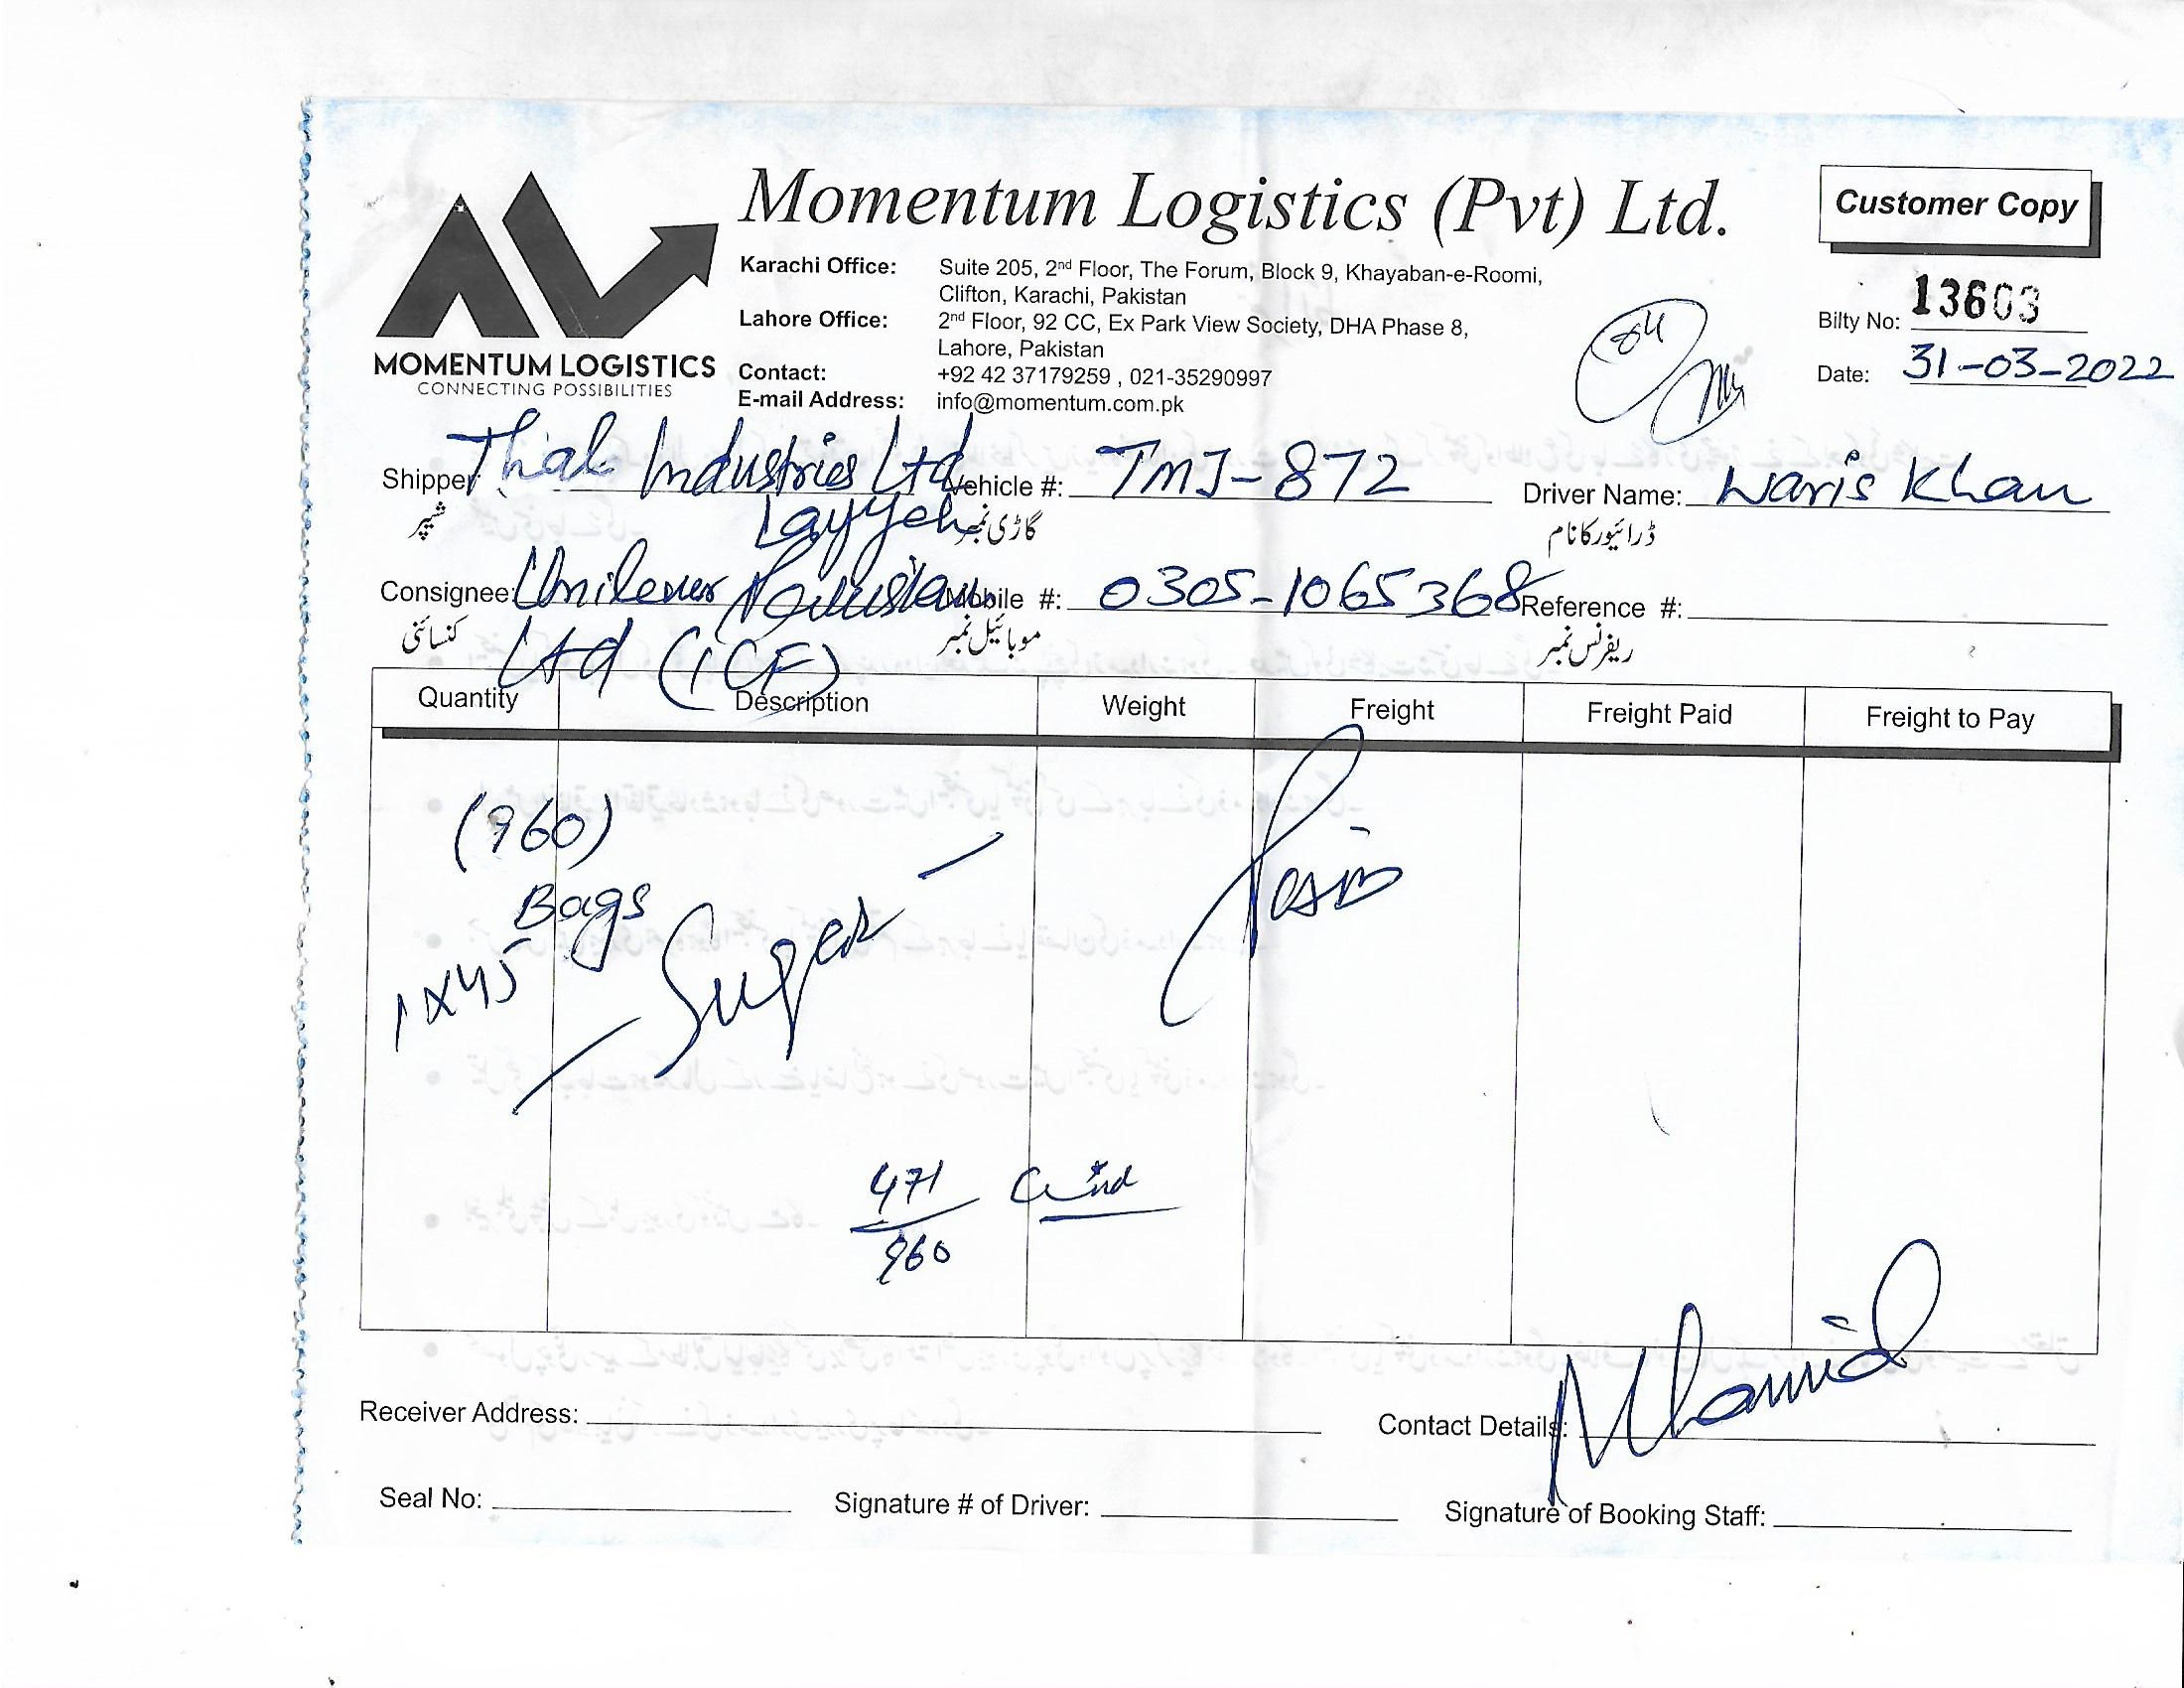 Momentum Logistics (Pvt) Ltd.
Customer Copy
MOMENTUM LOGISTICS
CONNECTING POSSIBILITIES
Karachi Office: Suite 205, 2nd Floor, The Forum, Block 9, Khayaban-e-Roomi,
Clifton, Karachi, Pakistan
Lahore Office: 2nd Floor, 92 CC, Ex Park View Society, DHA Phase 8,
Lahore, Pakistan
Contact: +92 42 37179259 , 021-35290997
E-mail Address: info@momentum.com.pk
Bilty No: 13603
Date: 31-03-2022
Shipper Thal Industries Ltd Vehicle #: TMJ-872 Driver Name: Waris Khan
Layyah
شیپر گاڑی نمبر ڈرائیور کا نام
Consignee: Unilever Pakistan Mobile #: 0305-1065368 Reference #:
کنسائنی موبائیل نمبر ریفرنس نمبر
Ltd (ICF)
Quantity Description Weight Freight Freight Paid Freight to Pay
(960)
Bags
1x45
Sugar
471
960
Receiver Address: Contact Details:
Seal No: Signature # of Driver: Signature of Booking Staff: